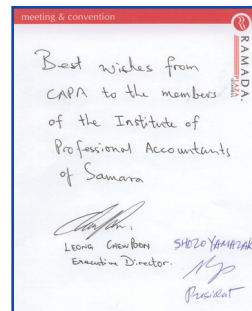 meeting & convention
RAMADA.
PLAZA
Best wishes from
CAPA to the members
of the Institute of
Professional Accountants
of Samara
LEONG CHEW POON
Executive Director.
SHOZO YAMAZAKI
President